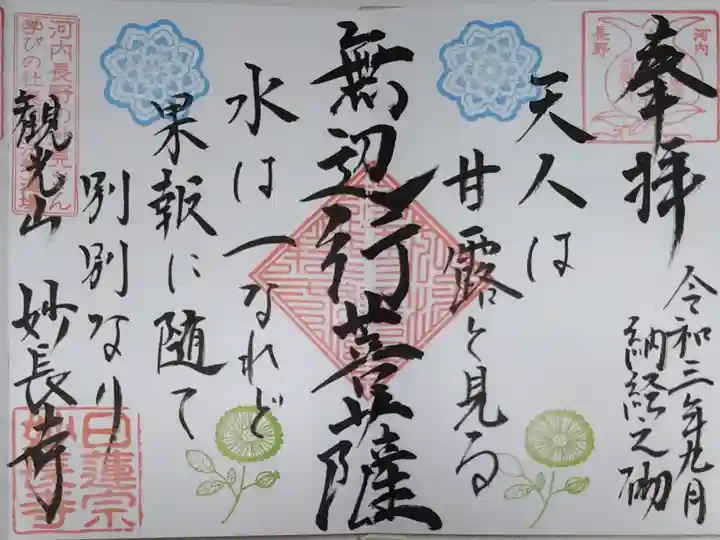 奉拝
令和三年九月
納経之砌
天人は
甘露と見る
無辺行菩薩
水は一なれど
果報に随て
別別なり
観光山 妙長寺
河内
長野
日蓮宗
妙長寺